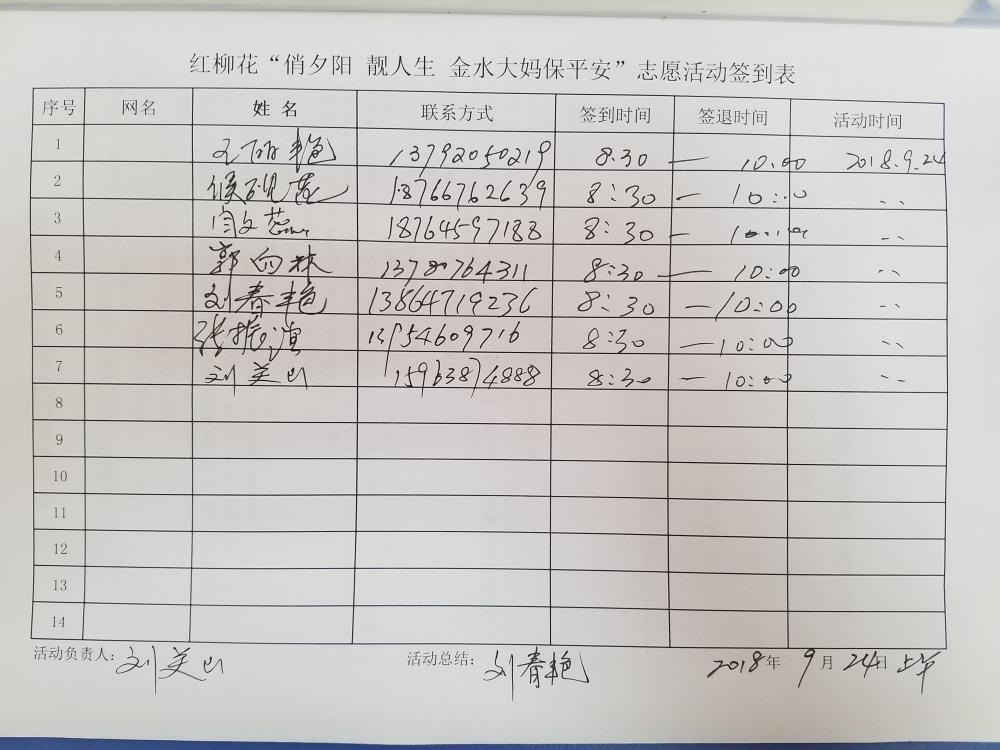 红柳花“俏夕阳 靓人生 金水大妈保平安”志愿活动签到表
序号 网名 姓 名 联系方式 签到时间 签退时间 活动时间
1 王丽艳 13792050219 8:30 — 10:00 2018.9.24
2 18766762639 8:30 — 10:00 、、
3 闫文蕊 18764597188 8:30 — 10:00 、、
4 郭向林 13780764311 8:30 — 10:00 、、
5 刘春艳 13864719236 8:30 — 10:00 、、
6 张振 13954609716 8:30 — 10:00 、、
7 刘美 15963874888 8:30 — 10:00 、、
8
9
10
11
12
13
14
活动负责人：刘美 活动总结：刘春艳 2018年 9月 24日 上午